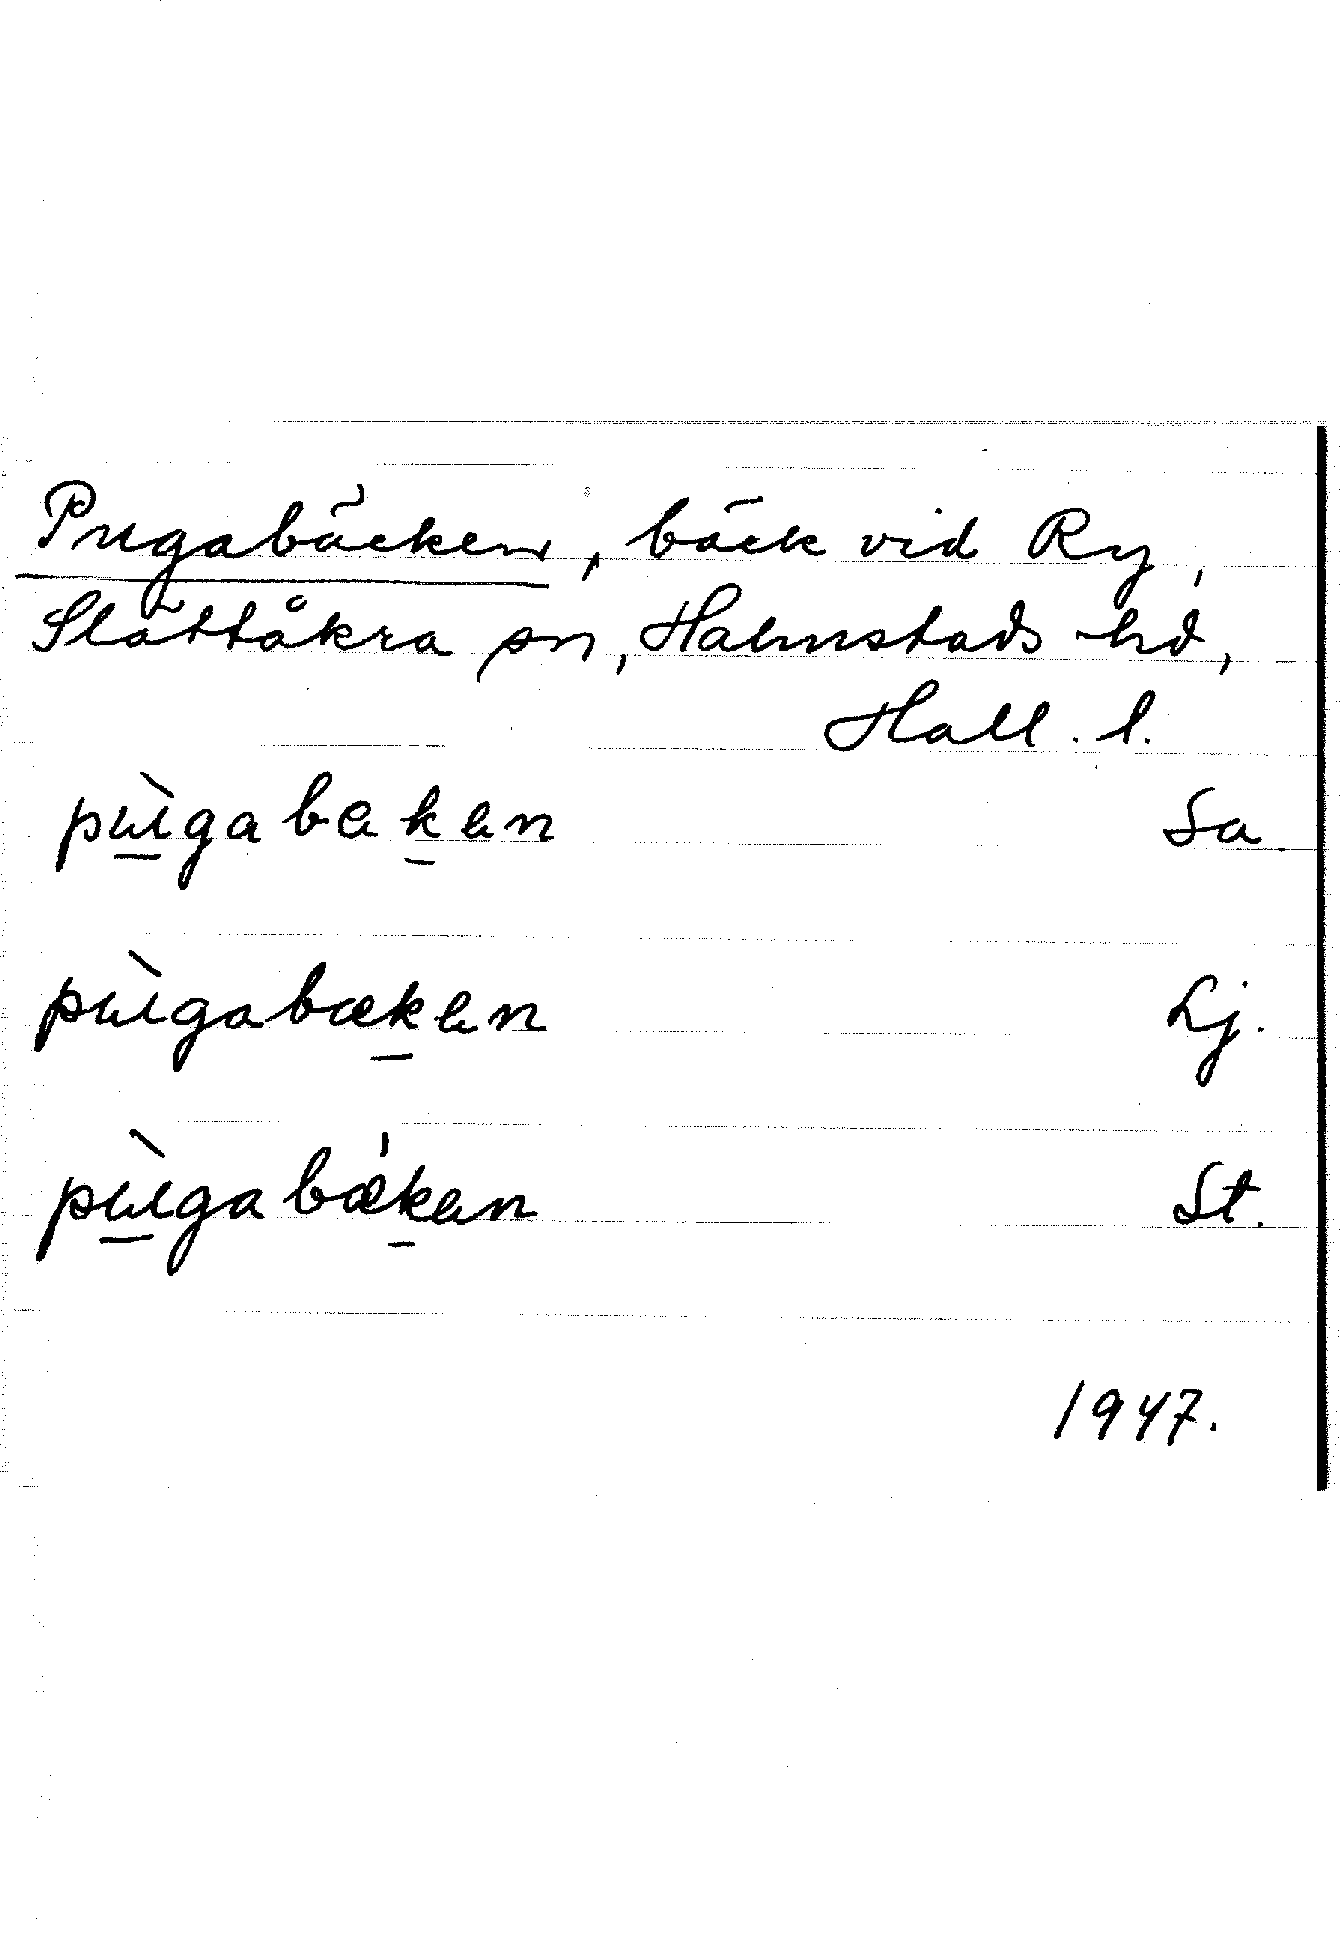 Pugabäcken, bäck vid Ry,
Slättåkra sn, Halmstads hd,
Hall. l.
pùgabakən Sa
pùgabækən Lj.
pùgabǽkən St.
1947.